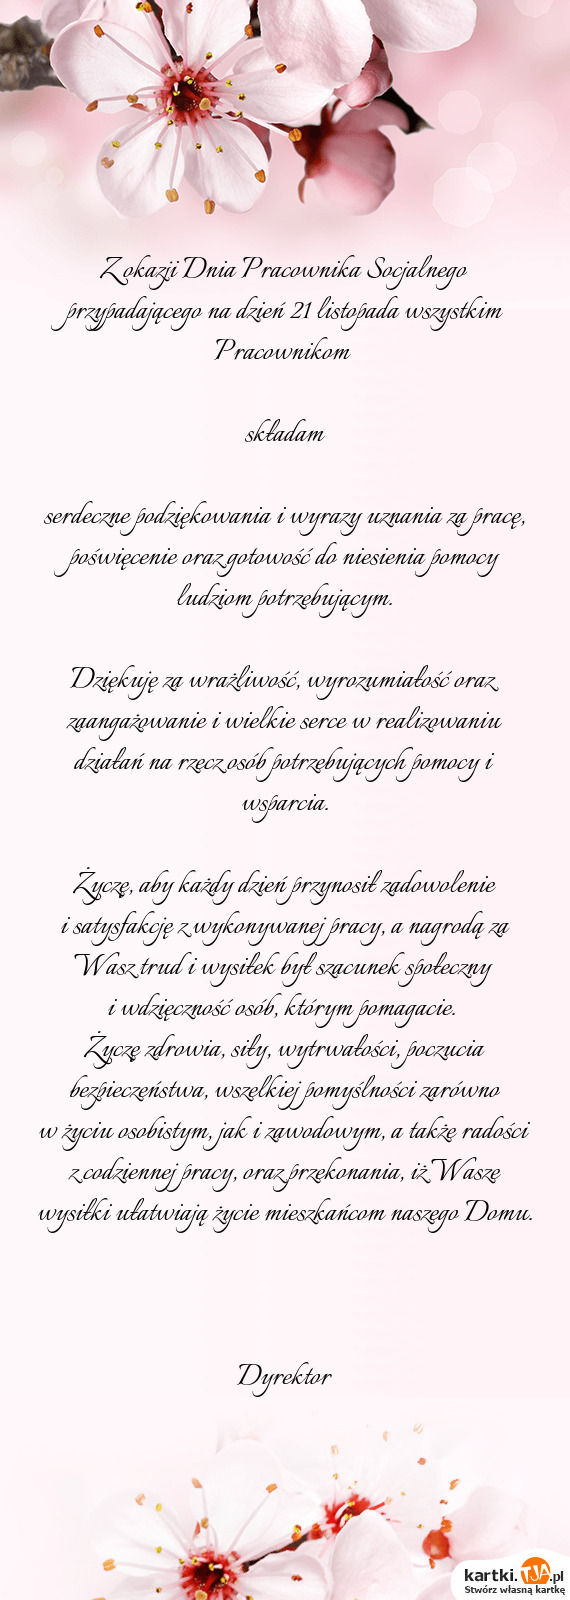 Z okazji Dnia Pracownika Socjalnego
przypadającego na dzień 21 listopada wszystkim
Pracownikom
składam
serdeczne podziękowania i wyrazy uznania za pracę,
poświęcenie oraz gotowość do niesienia pomocy
ludziom potrzebującym.
Dziękuję za wrażliwość, wyrozumiałość oraz
zaangażowanie i wielkie serce w realizowaniu
działań na rzecz osób potrzebujących pomocy i
wsparcia.
Życzę, aby każdy dzień przynosił zadowolenie
i satysfakcję z wykonywanej pracy, a nagrodą za
Wasz trud i wysiłek był szacunek społeczny
i wdzięczność osób, którym pomagacie.
Życzę zdrowia, siły, wytrwałości, poczucia
bezpieczeństwa, wszelkiej pomyślności zarówno
w życiu osobistym, jak i zawodowym, a także radości
z codziennej pracy, oraz przekonania, iż Wasze
wysiłki ułatwiają życie mieszkańcom naszego Domu.
Dyrektor
kartki.TJA.pl
Stwórz własną kartkę